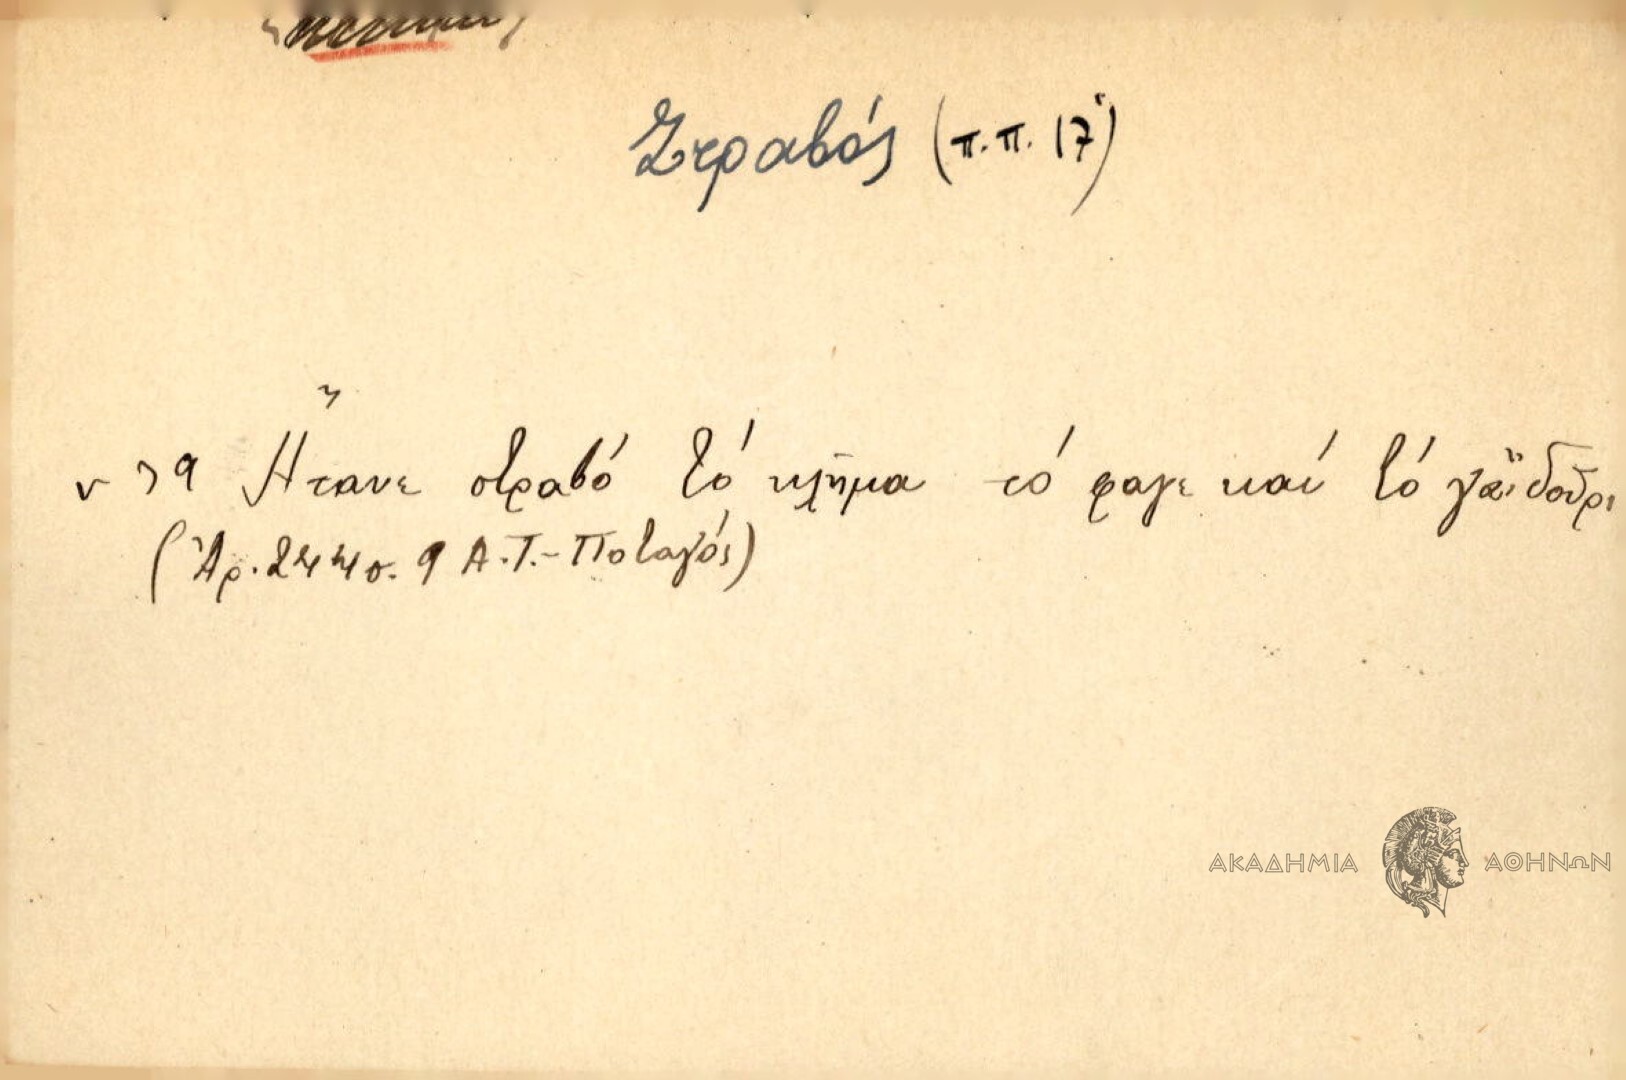 Στραβός (π.π. 17)
Ἤτανε στραβό τό κλῆμα τό φαγε καί τό γαϊδοῦρι
(Ἀρ. 244 σ. 9 Α.Τ.-Ποταγός)
ΑΚΑΔΗΜΙΑ ΑΘΗΝΩΝ